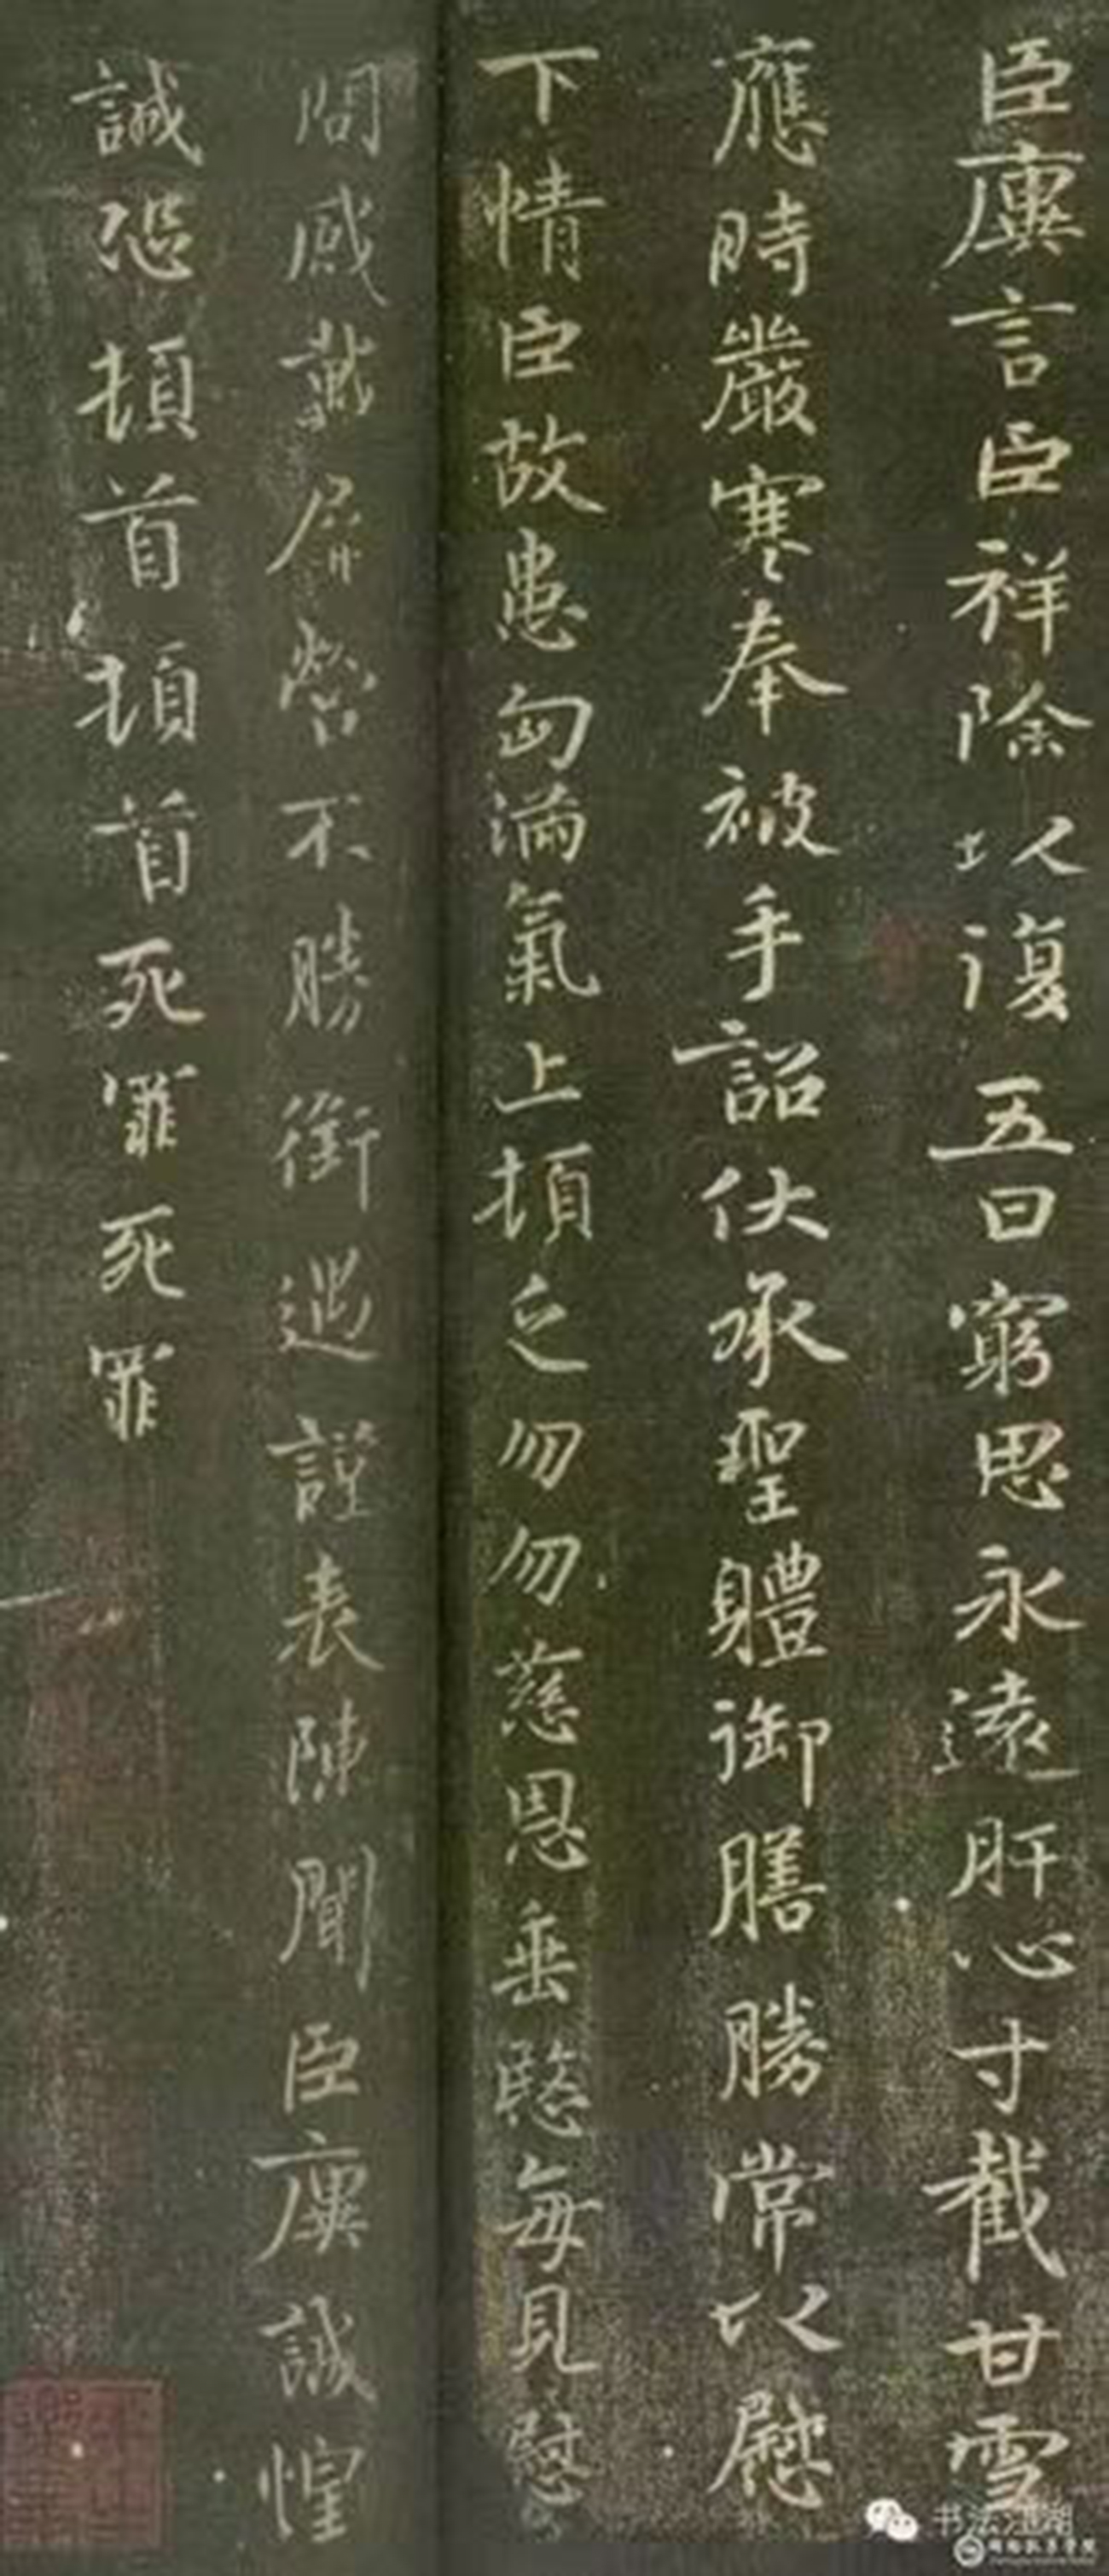 臣廙言臣祥除以復五日窮思永遠肝心寸截甘雪
應時嚴寒奉被手詔伏承聖體御膳勝常以慰
下情臣故患匈滿氣上頓乏勿勿慈恩垂愍每見慰
問感戴屏營不勝銜遇謹表陳聞臣廙誠惶
誠恐頓首頓首死罪死罪
书法江湖